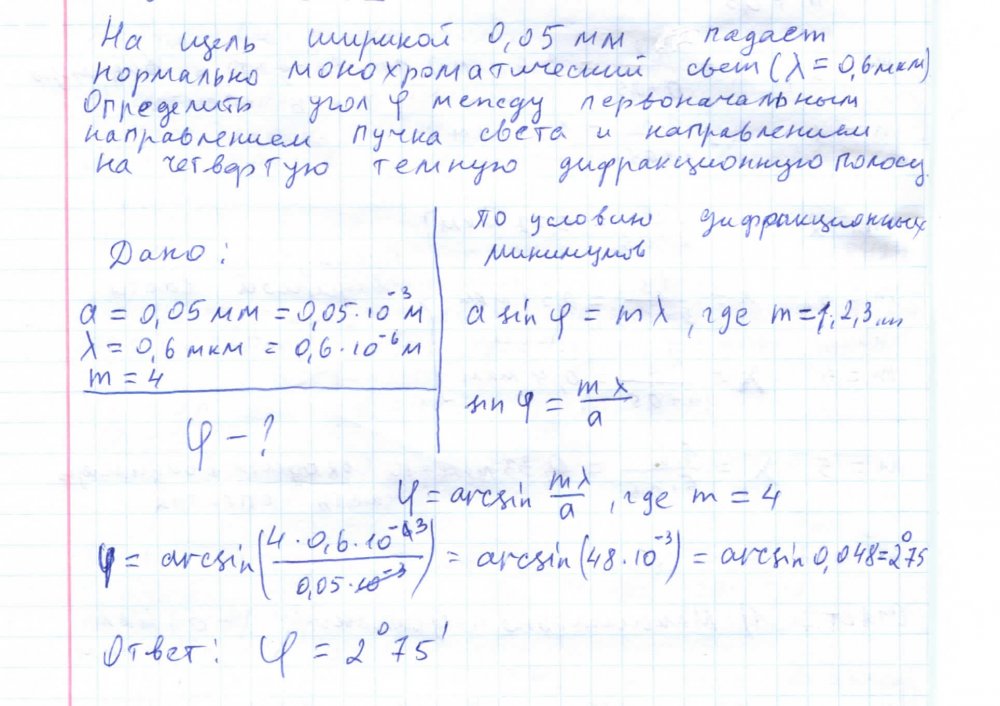 На щель шириной 0,05 мм падает
нормально монохроматический свет (λ = 0,6 мкм)
Определить угол φ между первоначальным
направлением пучка света и направлением
на четвертую темную дифракционную полосу.
Дано:
a = 0,05 мм = 0,05·10⁻³ м
λ = 0,6 мкм = 0,6·10⁻⁶ м
m = 4
φ - ?
по условию дифракционных
минимумов
a sin φ = mλ, где m = 1,2,3...
sin φ = mλ/a
φ = arcsin mλ/a, где m = 4
φ = arcsin(4·0,6·10⁻³/0,05·10⁻³) = arcsin(48·10⁻³) = arcsin 0,048 = 2°75
Ответ: φ = 2°75'